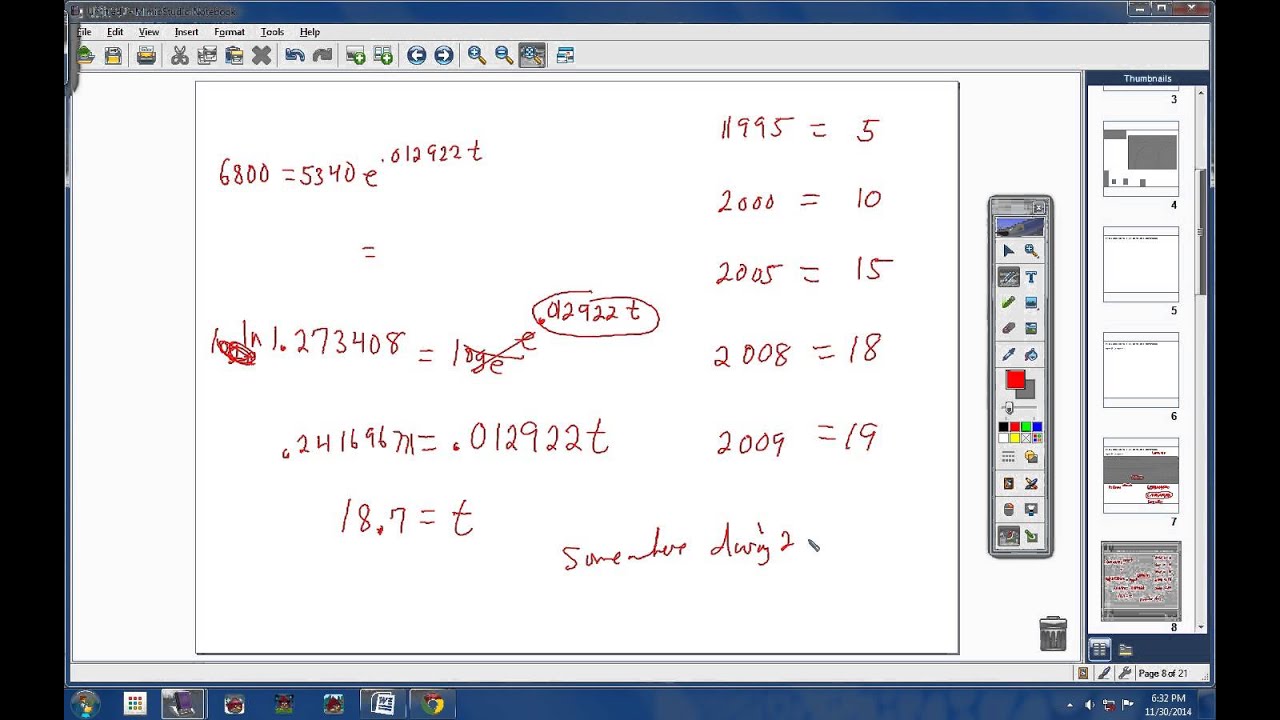 File Edit View Insert Format Tools Help
Thumbnails
3
4
5
6
7
8
6800 = 5340 e^.012922t
=
ln 1.273408 = log_e e^.012922t
.24169671 = .012922t
18.7 = t
1995 = 5
2000 = 10
2005 = 15
2008 = 18
2009 = 19
Somewhere during 2
Page 8 of 21
6:32 PM
11/30/2014